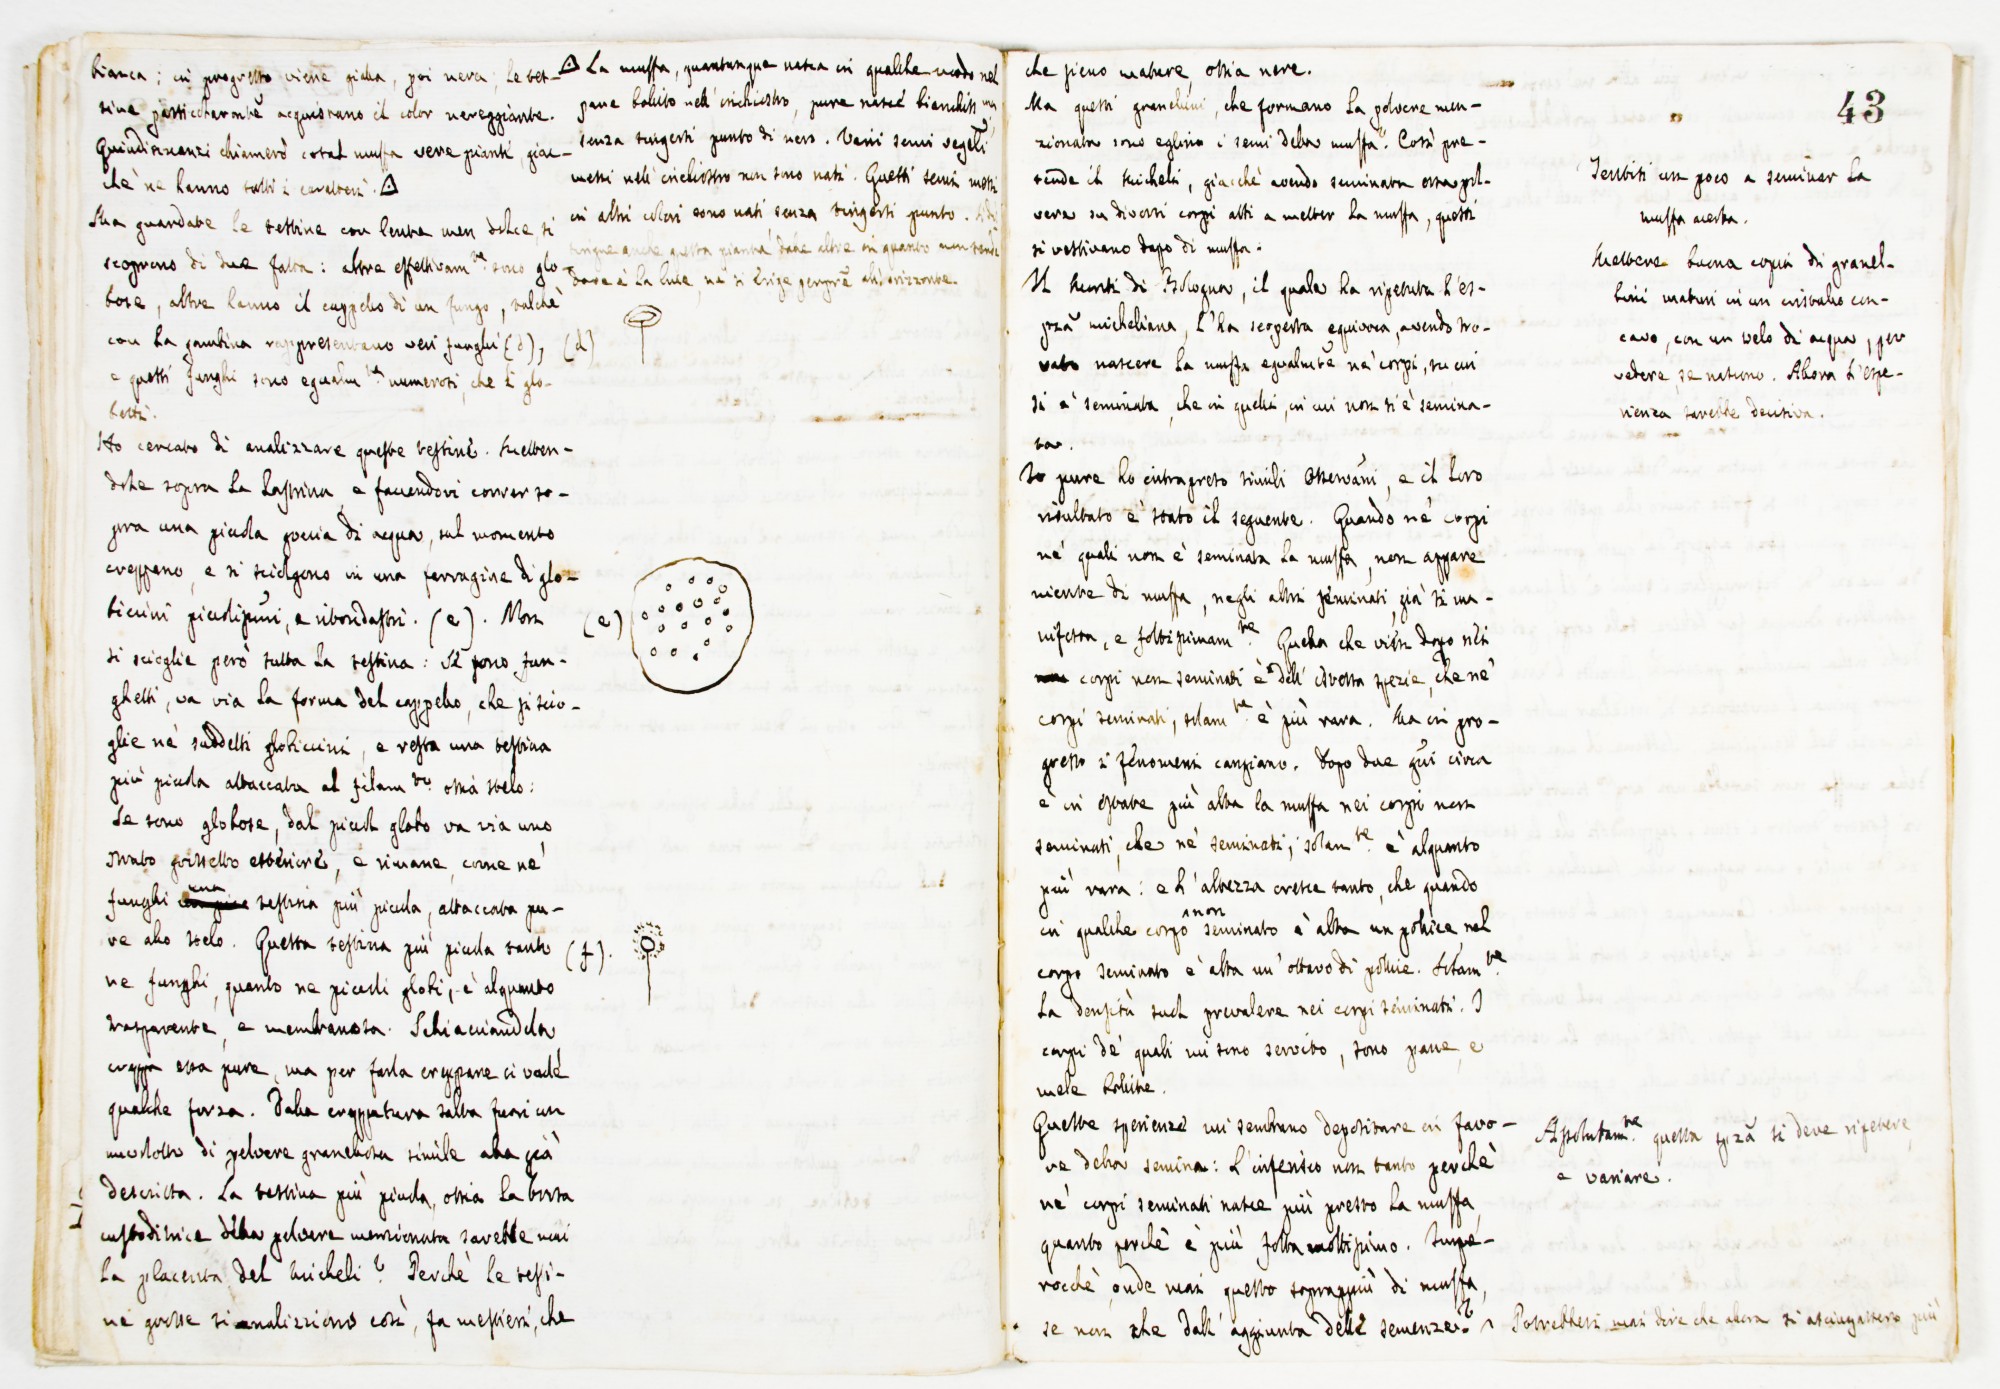 bianca; in progresso viene gialla, poi nera; le tes-
tine particolarmte acquistano il color nereggiante.
Quindinnanzi chiamerò cotal muffa vere piante, giac-
chè ne hanno tutti i caratteri. △
Ma guardate le testine con lente men dolce, si
scoprono di due fatta: altre effettivamte sono glo-
bose, altre hanno il cappello di un fungo, talchè
con la gambina rappresentano veri funghi (d),
e questi funghi sono egualmte numerosi, che i glo-
betti.
Ho cercato di analizzare queste testine. Metten-
dole sopra la lastrina, e facendovi correr so-
pra una picciola goccia di acqua, sul momento
creppano, e si sciolgono in una farragine di glo-
biccini picciolissimi, e ritondastri. (e). Non
si scioglie però tutta la testina: Se sono fun-
ghetti, va via la forma del cappello, che si scio-
glie ne' suddetti globiccini, e resta una testina
più picciola attaccata al filamto ossia stelo:
Se sono globose, dal picciol globo va via uno
strato grossetto esteriore, e rimane, come ne'
funghi una testina più picciola, attaccata pu-
re allo stelo. Questa testina più picciola tanto
ne funghi, quanto ne piccioli globi, è alquanto
trasparente, e membranosa. Schiacciandola
creppa essa pure, ma per farla creppare ci vuole
qualche forza. Dalla creppatura salta fuori un
nuvoletto di polvere granellosa simile alla già
descritta. La testina più picciola, ossia la borsa
custoditrice della polvere menzionata sarebbe mai
la placenta del Micheli? Perchè le testi-
ne grosse si analizzino così, fa mestieri, che
△ La muffa, quantunque nasca in qualche modo nel
pane bollito nell'inchiostro, pure nasce bianchiss ma
senza tingersi punto di nero. Varii semi vegeli
messi nell'inchiostro non sono nati. Questi semi messi
in altri colori sono nati senza tingersi punto.
tingue anche questa pianta dalle altre in quanto non tende
dove è la luce, ne si erige sempre all'orizzonte.
(d)
(e)
(f).
43
che sieno mature, ossia nere.
Ma questi granellini, che formano la polvere men-
zionata sono eglino i semi della muffa? Così pre-
tende il Micheli, giacchè avendo seminata essa pol-
vere su diversi corpi atti a metter la muffa, questi
si vestivano dopo di muffa.
Il Monti di Bologna, il quale ha ripetuta l'es-
pza micheliana, l'ha scoperta equivoca, avendo tro-
vato nascere la muffa egualmte ne' corpi, su cui
si è seminata, che in quelli, in cui non si è semina-
ta.
Io pure ho intrapreso simili osservani, e il loro
risultato è stato il seguente. Quando ne' corpi
ne' quali non è seminata la muffa, non appare
niente di muffa, negli altri seminati, già si ma-
nifesta, e foltissimamte. Quella che vien dopo nei
corpi non seminati è dell'istessa spezie, che ne'
corpi seminati, solamte è più rara. Ma in pro-
gresso i fenomeni cangiano. Dopo due gni circa
è in estate più alta la muffa nei corpi non
seminati, che ne' seminati; solamte è alquanto
più rara: e l'altezza cresce tanto, che quando
in qualche corpo non seminato è alta un pollice nel
corpo seminato è alta un'ottavo di pollice. Solamte
la densità suol prevalere nei corpi seminati. I
corpi de' quali mi sono servito, sono pane, e
mele bollite.
Queste sperienze mi sembrano depositare in favo-
re della semina: l'inferisco non tanto perchè
ne' corpi seminati nasce più presto la muffa,
quanto perchè è più folta moltissimo. Impe-
rocchè, onde mai questo soprappiù di muffa,
se non che dall'aggiunta delle semenze?
Tentisi un poco a seminar la
muffa acerba.
Mettere buona copia di granel-
lini maturi in un cristallo con-
cavo, con un velo di acqua, per
vedere, se nascono. Allora l'espe-
rienza sarebbe decisiva.
Assolutamte questa spza si deve ripetere,
e variare.
Potrebbesi mai dire che allora si asciugassero più